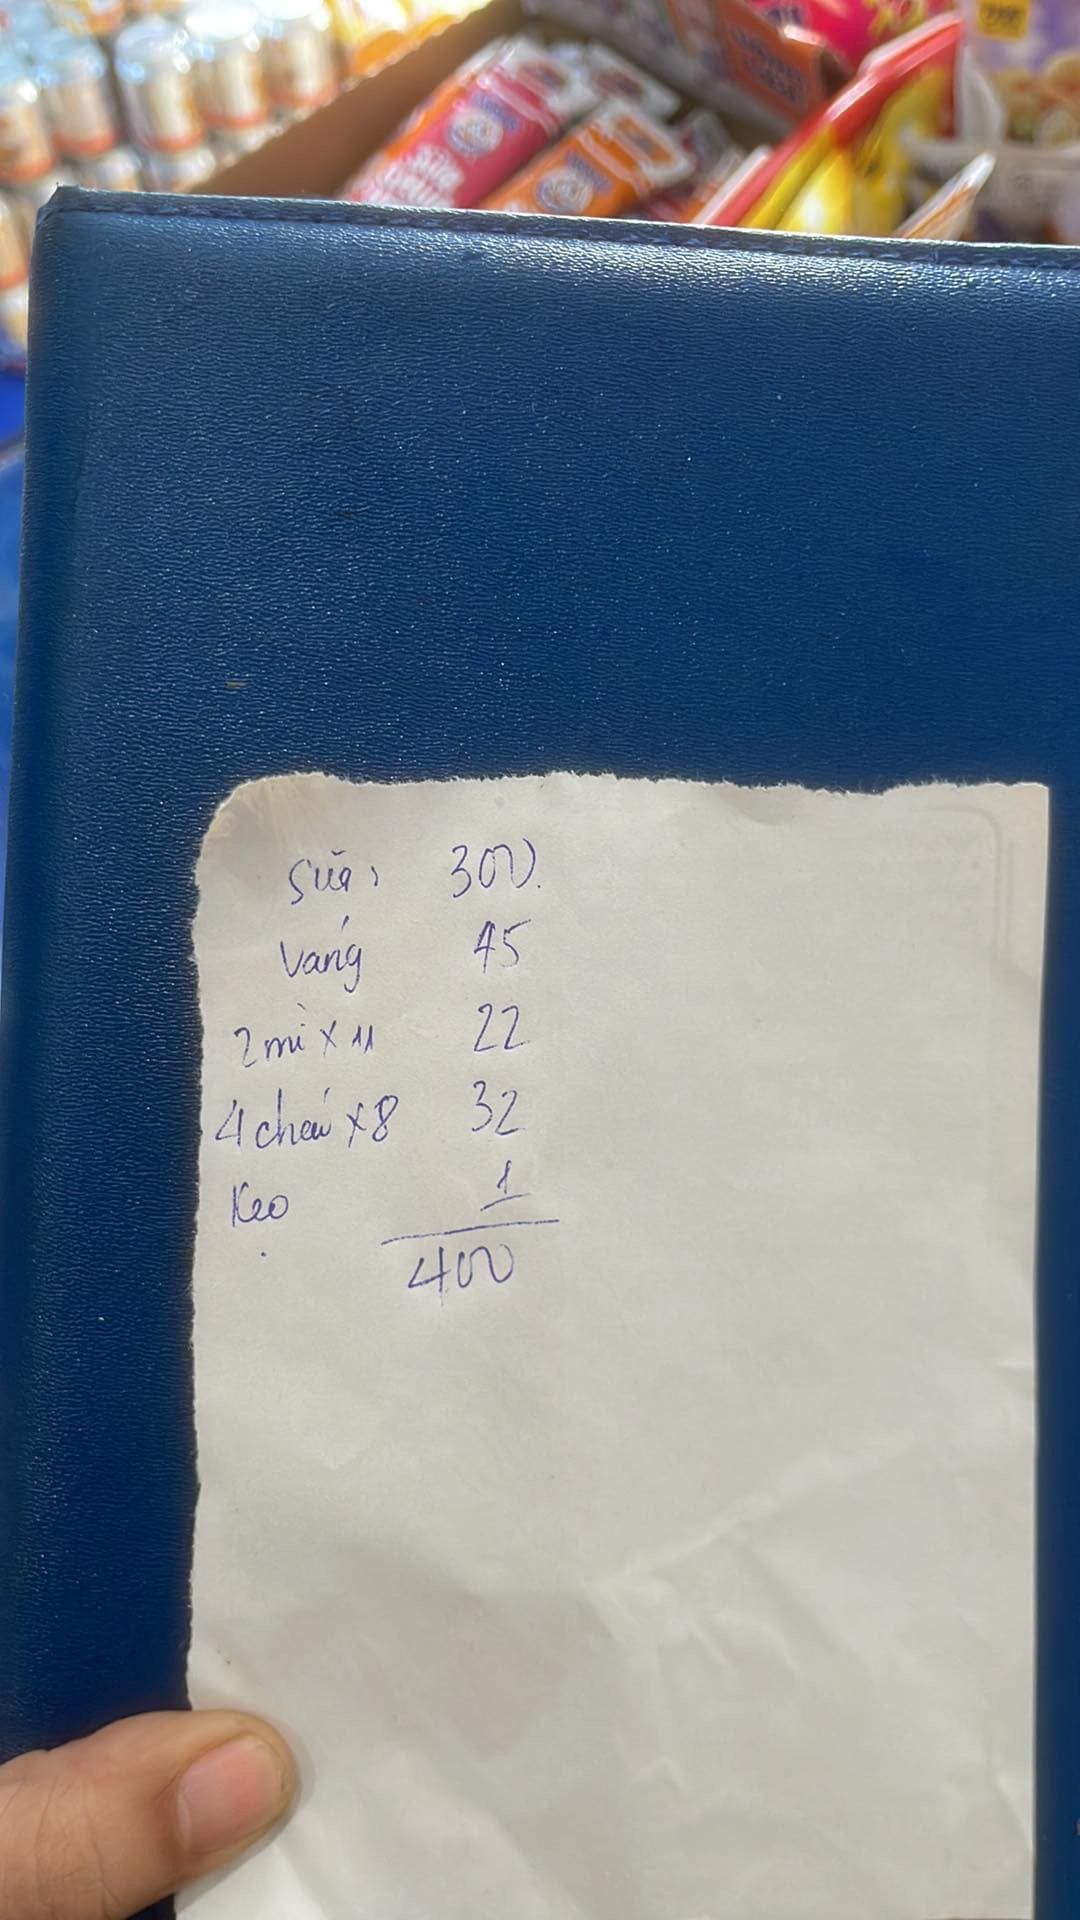 Sữa, 300.
Váng 45
2 mì x 11 22
4 cháo x8 32
Kẹo 1
400